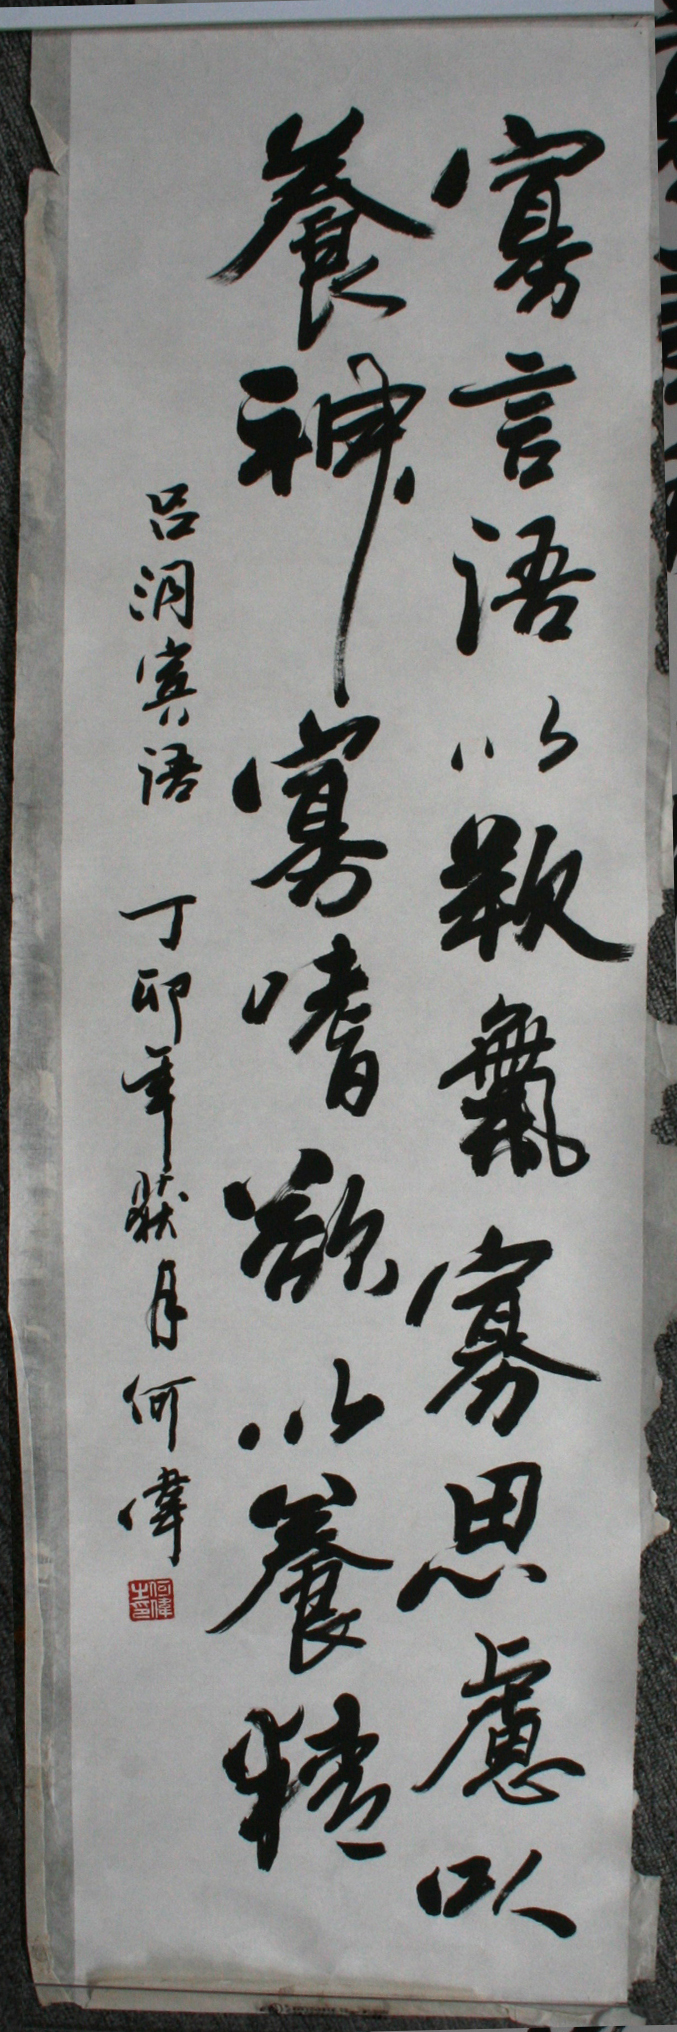 寡言語以養氣寡思慮以
養神寡嗜欲以養精
吕洞賓語 丁卯年月何偉
何偉之印